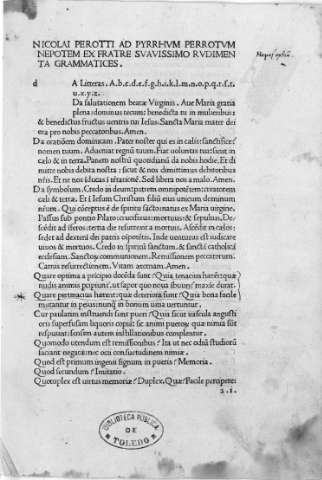 NICOLAI PEROTTI AD PYRRHVM PERROTVM
NEPOTEM EX FRATRE SVAVISSIMO RVDIMEN
TA GRAMMATICES.
d A Litteras. A.b.c.d.e.f.g.h.i.k.l.m.n.o.p.q.r.s.t.
u.x.y.z.
Da salutationem beatæ Virginis. Aue Maria gratia
plena: dominus tecum: benedicta tu in mulieribus:
& benedictus fructus uentris tui Iesus. Sancta Maria mater dei
ora pro nobis peccatoribus. Amen.
Da orationem dominicam. Pater noster qui es in cælis: sanctificet̃
nomen tuum. Adueniat regnũ tuum. Fiat uoluntas tua: sicut in
cælo & in terra. Panem nostrũ quotidianũ da nobis hodie. Et di
mitte nobis debita nostra: sicut & nos dimittimus debitoribus
nr̃is. Et ne nos iducas i tẽtationẽ. Sed libera nos a malo. Amen.
Da symbolum. Credo in deum: patrem omnipotẽtem: creatorem
cæli & terræ. Et i Iesum Christum filiũ eius unicum dominum
nr̃um. Qui cõceptus ẽ de spiritu sãcto: natus ex Maria uirgine.
Passus sub pontio Pilato: crucifixus: mortuus: & sepultus. De-
scẽdit ad iferos: tertia die resurrexit a mortuis. Ascẽdit in cælos:
sedet ad dexterã dei patris oĩpotẽtis. Inde uenturus est iudicare
uiuos & mortuos. Credo in spiritũ sanctum. & sanctã catholicã
ecclesiam. Sanctorum communionem. Remissionem peccatorum.
Carnis resurrectionem. Vitam æternam. Amen.
Quare optima a principio docẽda sunt? Quia tenacius hærẽt: quæ
rudis animis pcipiuns: ut sapor quo noua ibuuns: maxie durat.
Quare pertinacius hærent: quæ deteriora sunt? Quia bona facile
mutantur in peius: nunq̃ in bonum uitia uertuntur.
Cur paulatim instruendi sunt pueri? Quia sicut uascula angusti
oris superfusam liquoris copiã: sic animi puerorum quæ nimia sũt
respuunt: sensim autem instillationibus complentur.
Quomodo utendum est remissionibus? Ita ut nec odiũ studiorũ
faciant negatæ: nec ocii consuetudinem nimiæ.
Quod est primum ingenii signum in pueris? Memoria.
Quod secundum? Imitatio.
Quotuplex est uirtus memoriæ? Duplex. Quæ? Facile percipere:
a.i.
BIBLIOTECA PÚBLICA
DE
TOLEDO